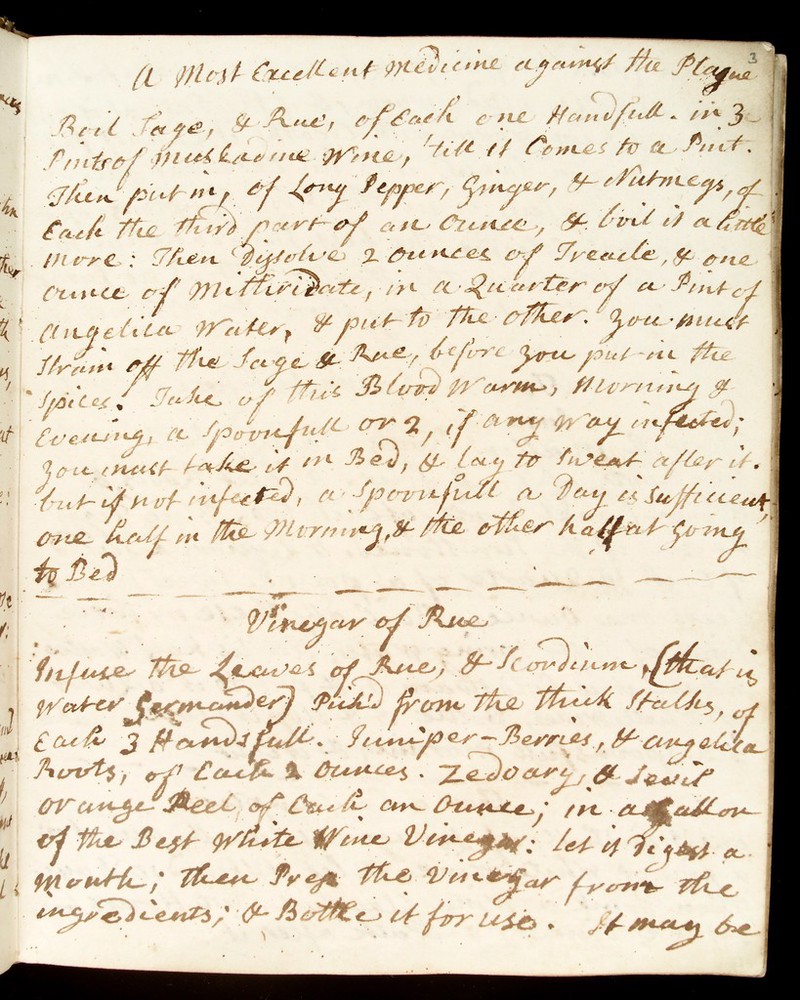 3
A Most Excellent Medicine against the Plague
Boil Sage, & Rue, of Each one Handfull. in 3
Pints of Muskadine Wine, 'till it Comes to a Pint.
Then put in, of Long Pepper, Ginger, & Nutmegs, of
Each the third part of an Ounce, & boil it a little
more: Then Dissolve 2 Ounces of Treacle, & one
Ounce of Mithridate, in a Quarter of a Pint of
Angelica Water, & put to the other. You must
Strain off the Sage & Rue, before you put in the
Spices. Take of this Blood Warm, Morning &
Evening, a Spoonfull or 2, if any way infected;
you must take it in Bed, & lay to Sweat after it.
but if not infected, a Spoonfull a Day is Sufficient,
one half in the Morning, & the other half at going
to Bed
Vinegar of Rue
Infuse the Leaves of Rue, & Scordium, (that is
Water Germander) Pick'd from the thick Stalks, of
Each 3 Handsfull. Juniper-Berries, & Angelica
Roots, of Each 2 Ounces. Zedoary, & Sevil
Orange Peel, of Each an Ounce; in a Gallon
of the Best White Wine Vinegar: let it Digest a
Month; then Press the Vinegar from the
ingredients; & Bottle it for use. It may be